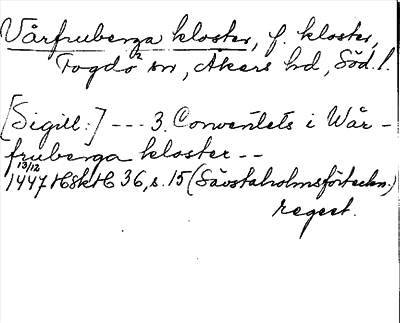 Vårfruberga kloster, f. kloster,
Fogdö sn, Åkers hd, Söd. l.
[Sigill:] --- 3. Conventets i Wår-
fruberga kloster --
13/12
1447 HSkH 36, s. 15 (Sävstaholmsförteckn.)
regest.